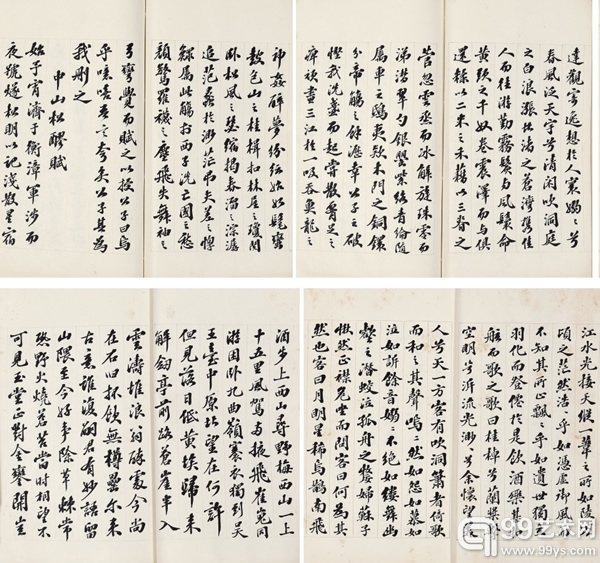 達觀寄逍想於人寰嫋嫋兮
春風泛天宇兮清閑吹洞庭
之白浪漲北渚之蒼灣攜佳
人而往游勤霧鬢與風鬟命
黃頭之千奴卷震澤而與俱
還糅以二米之禾藉以三脊之
菅忽雲烝而冰解旋珠零而
涕潸翠勺銀罌紫絡青綸隨
屬車之鴟夷款木門之銅鐶
分帝觴之餘瀝幸公子之破
慳我洗盞而起嘗散腰足之
痺頑盡三江於一吸吞魚龍之
神姦醉夢紛紜始如髦蠻
鼓包山之桂楫扣林屋之瓊關
臥松風之瑟縮揭春溜之淙潺
追范蠡於渺茫弔夫差之惸
鰥屬此觴於西子洗亡國之愁
顏驚羅襪之塵飛失舞袖之
弓彎覺而賦之以授公子曰烏
乎噫嘻吾言夸矣公子其為
我刪之
中山松醪賦
始予宵濟於衡漳軍涉而
夜號燧松明以記淺散星宿
江水光接天縱一葦之所如陵万
頃之茫然浩浩乎如憑虛御風而
不知其所止飄飄乎如遺世獨立
羽化而登僊於是飲酒樂甚扣
舷而歌之歌曰桂棹兮蘭槳擊
空明兮泝流光渺渺兮余懷望美
人兮天一方客有吹洞簫者倚歌
而和之其聲嗚嗚然如怨如慕如
泣如訴餘音嫋嫋不絕如縷舞幽
壑之潛蛟泣孤舟之嫠婦蘇子
愀然正襟危坐而問客曰何為其
然也客曰月明星稀烏鵲南飛
酒步上西山尋野梅西山一上
十五里風駕兩掖飛崔嵬同
游困臥九曲嶺褰衣獨到吳
王臺中原北望在何許
但見落日低黃埃歸來
解劍亭前路蒼崖半入
雲濤堆浪翁醉處今尚
在石臼杯飲無樽罍爾來
古意誰復嗣公有妙語留
山隈至今好事除草棘常
恐野火燒蒼苔當時相望不
可見玉堂正對金鑾開豈
99艺术网
www.99ys.com